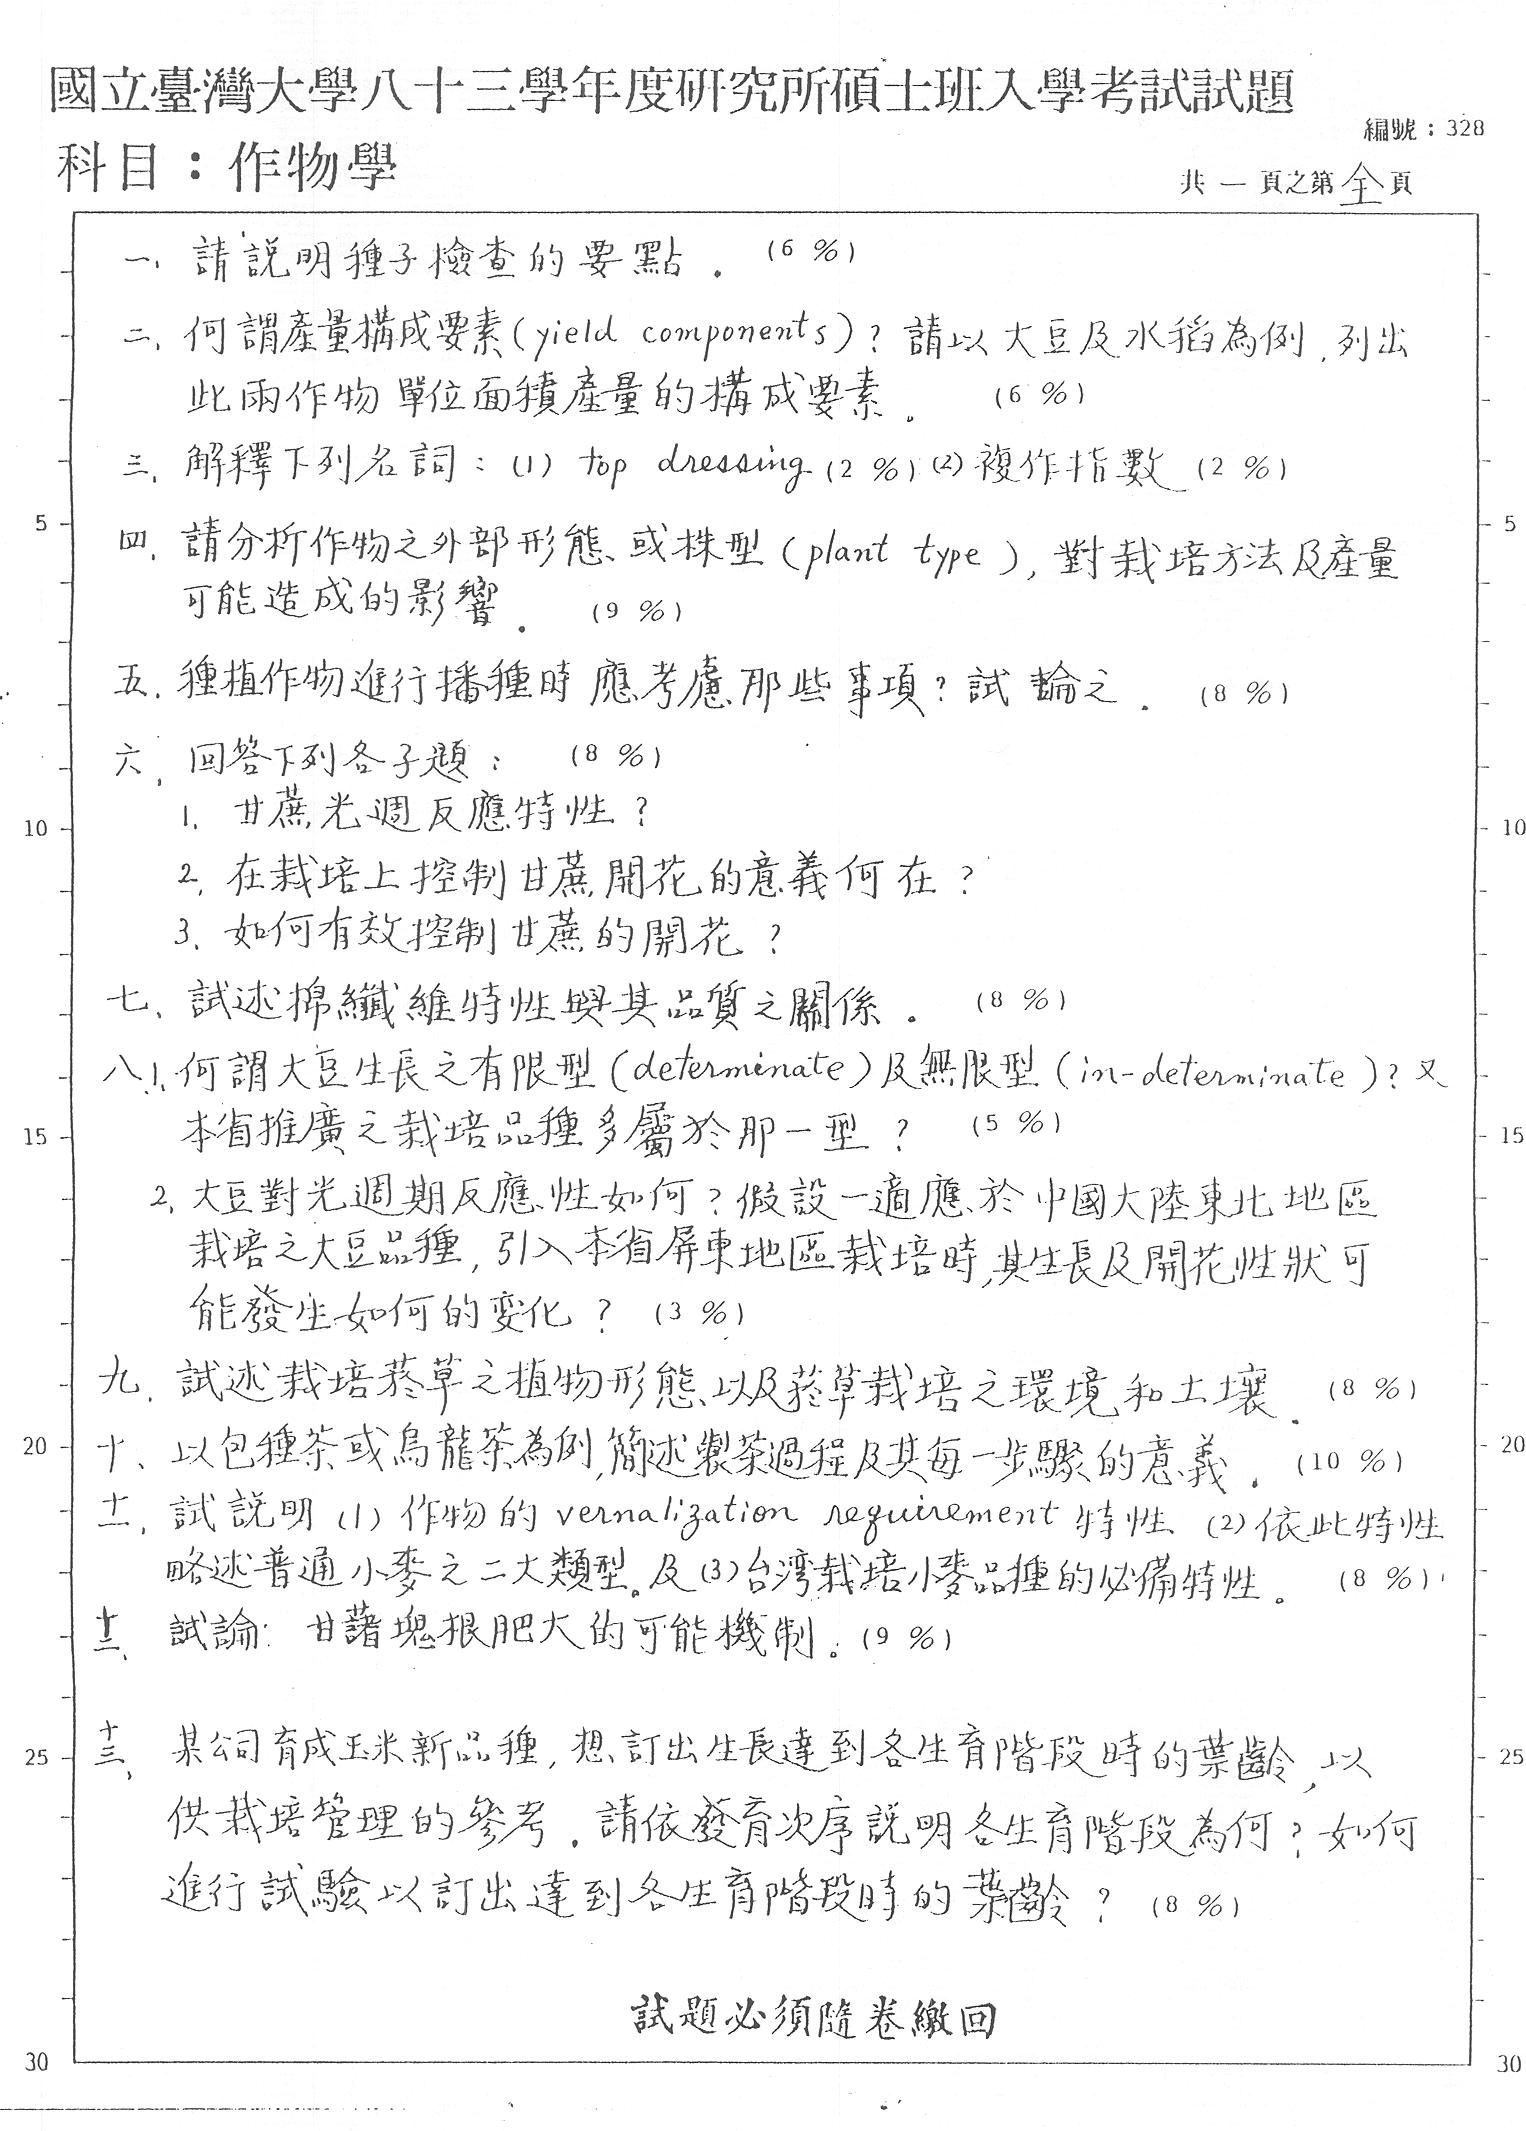 國立臺灣大學八十三學年度研究所碩士班入學考試試題
編號：328
科目：作物學
共一頁之第全頁
一、請說明種子檢查的要點。(6 %)
二、何謂產量構成要素(yield components)?請以大豆及水稻為例,列出
此兩作物單位面積產量的構成要素。(6 %)
三、解釋下列名詞：(1) top dressing (2 %) (2)複作指數 (2 %)
四、請分析作物之外部形態或株型(plant type),對栽培方法及產量
可能造成的影響。(9 %)
5
5
五、種植作物進行播種時應考慮那些事項?試論之。(8 %)
六、回答下列各子題：(8 %)
1. 甘蔗光週反應特性?
10
10
2. 在栽培上控制甘蔗開花的意義何在?
3. 如何有效控制甘蔗的開花?
七、試述棉纖維特性與其品質之關係。(8 %)
八、1. 何謂大豆生長之有限型(determinate)及無限型(in-determinate)?又
本省推廣之栽培品種多屬於那一型?(5 %)
15
15
2. 大豆對光週期反應性如何?假設一適應於中國大陸東北地區
栽培之大豆品種,引入本省屏東地區栽培時,其生長及開花性狀可
能發生如何的变化?(3 %)
九、試述栽培菸草之植物形態以及菸草栽培之環境和土壤。(8 %)
20
20
十、以包種茶或烏龍茶為例,簡述製茶過程及其每一步驟的意義。(10 %)
十一、試說明(1)作物的vernalization requirement特性 (2)依此特性
略述普通小麥之二大類型。及(3)台湾栽培小麥品種的必備特性。(8 %)
十二、試論：甘藷塊根肥大的可能機制。(9 %)
十三、某公司育成玉米新品種,想訂出生長達到各生育階段時的葉齡,以
25
25
供栽培管理的參考。請依發育次序說明各生育階段為何?如何
進行試驗以訂出達到各生育階段時的葉齡?(8 %)
試題必須隨卷繳回
30
30